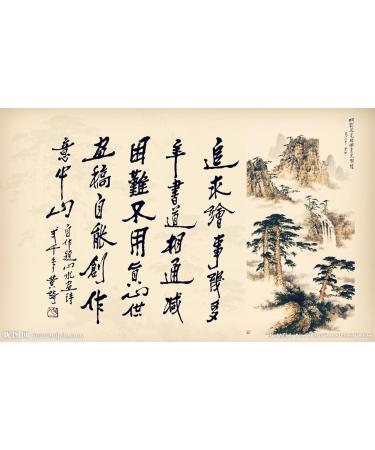 追求繪事幾多
年書道相通減
困難不用真山供
画稿自能創作
意中山
自作題山水画詩
昵图网 www.nipic.com